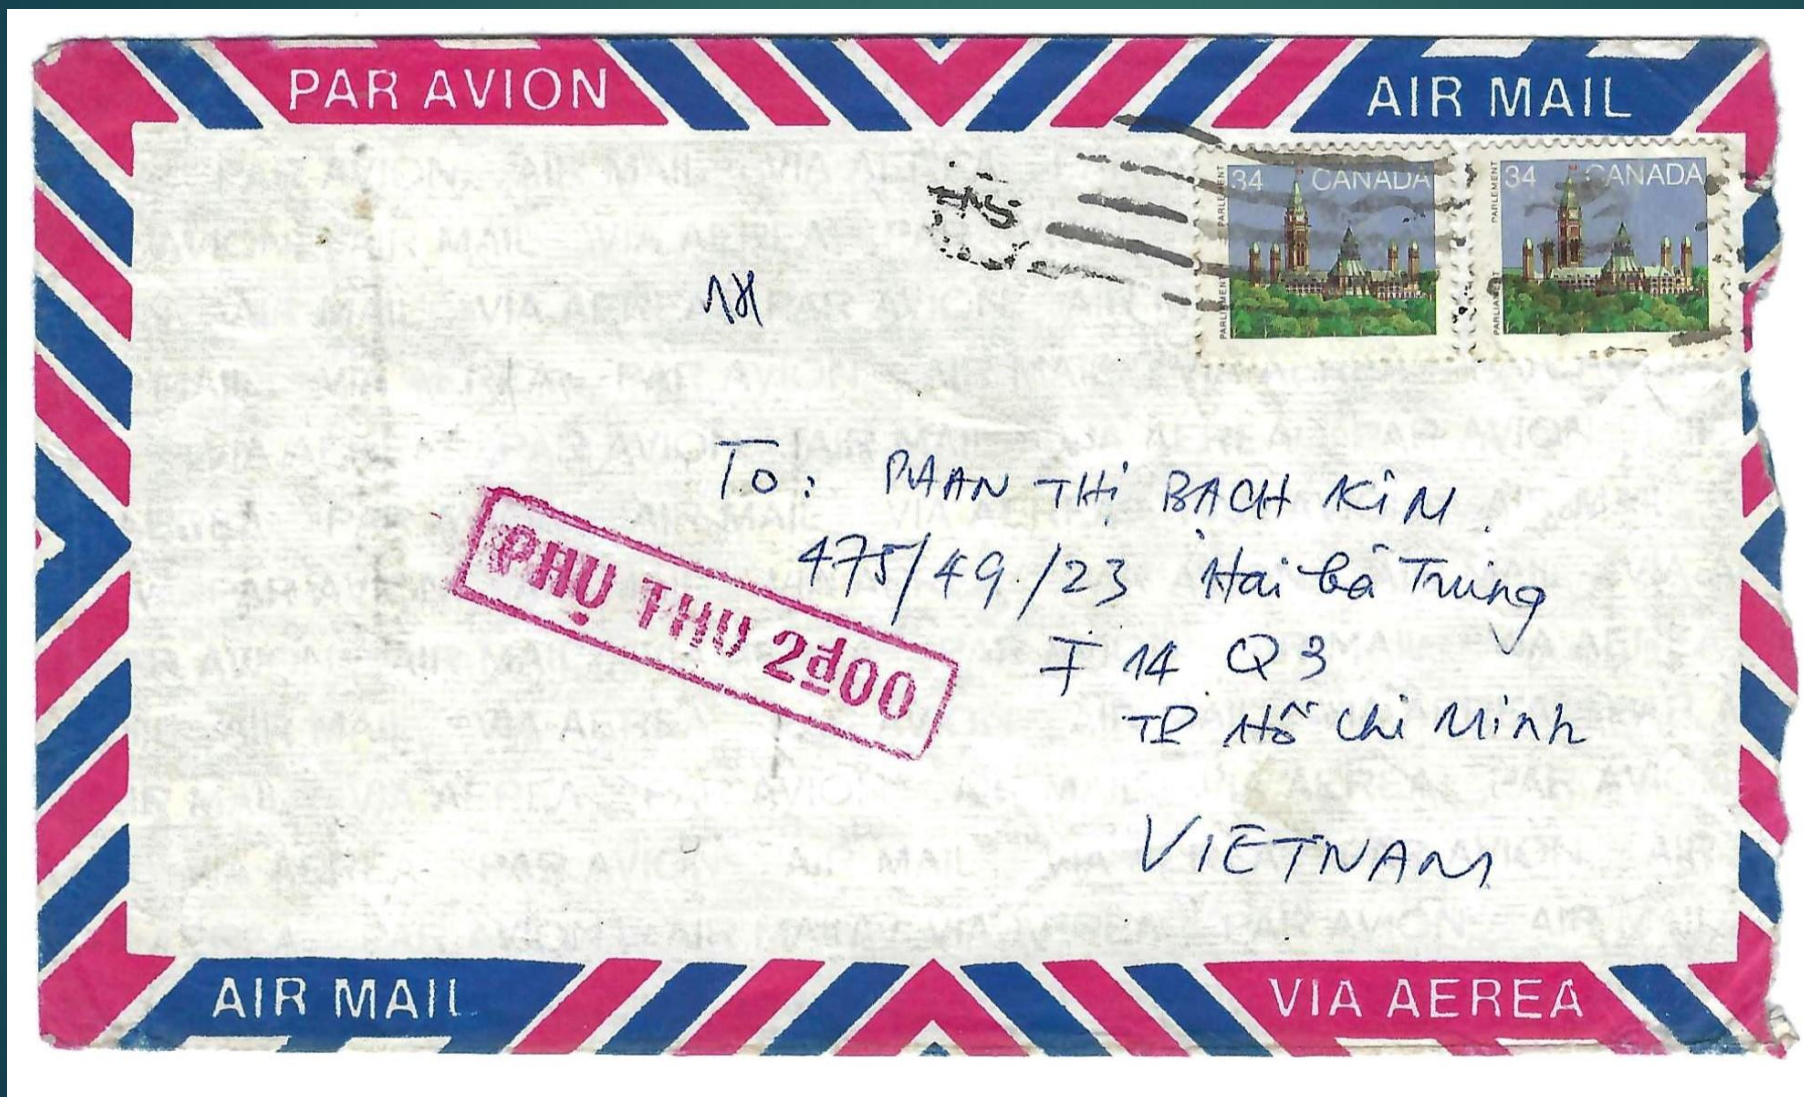 PAR AVION
AIR MAIL
34 CANADA
PARLIAMENT PARLEMENT
34 CANADA
PARLIAMENT PARLEMENT
To: PHAN THỊ BẠCH KIM.
475/49/23 Hai bà Trưng
F 14 Q 3
TP Hồ Chi Minh
VIETNAM
PHỤ THU 2đ00
AIR MAIL
VIA AEREA